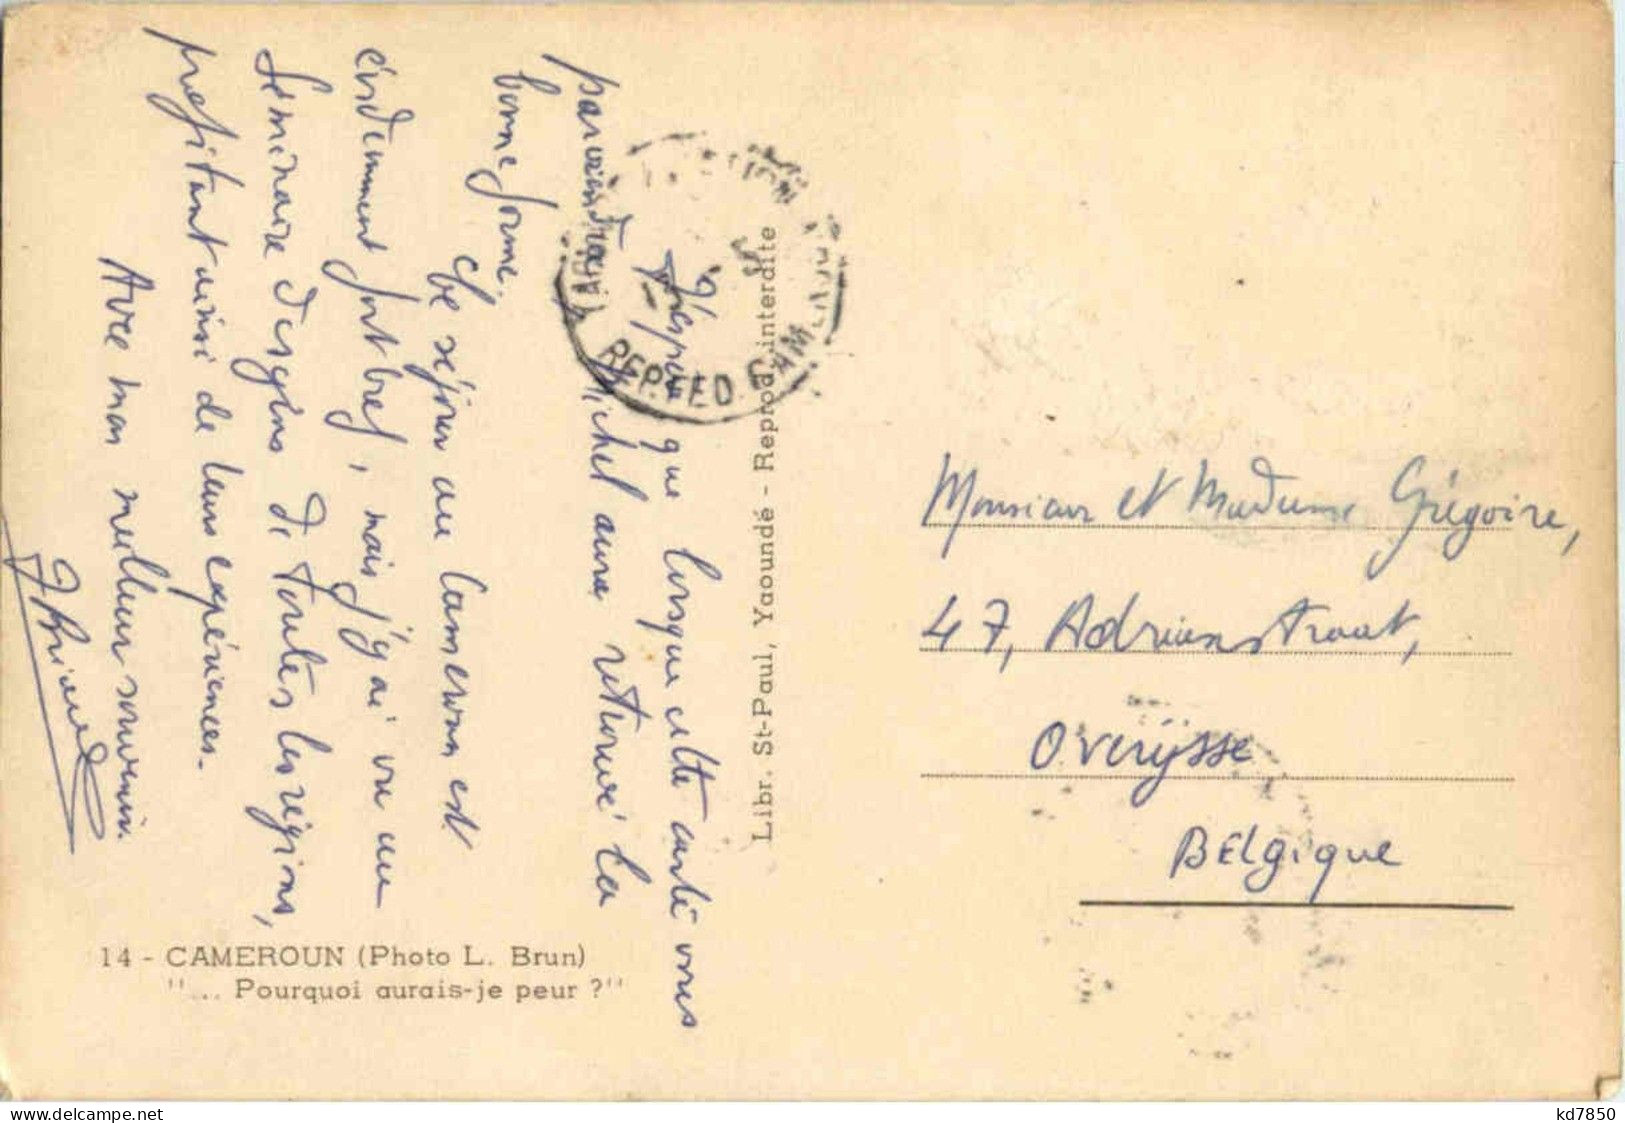 J'espère que lorsque cette carte vous
parviendra Michel aura retrouvé la
bonne forme.
Ce séjour au Cameroun est
évidemment fort bref, mais j'y ai vu un
Séminaire de gens de toutes les régions,
profitant ainsi de leurs expériences.
Avec mon meilleur souvenir.
Libr. St-Paul, Yaoundé - Reprod. interdite
REP. FED. CAM
Monsieur et Madame Grégoire,
47, Adrianstraat,
Overÿsse
BElgique
14 - CAMEROUN (Photo L. Brun)
"... Pourquoi aurais-je peur ?"
www.delcampe.net
kd7850